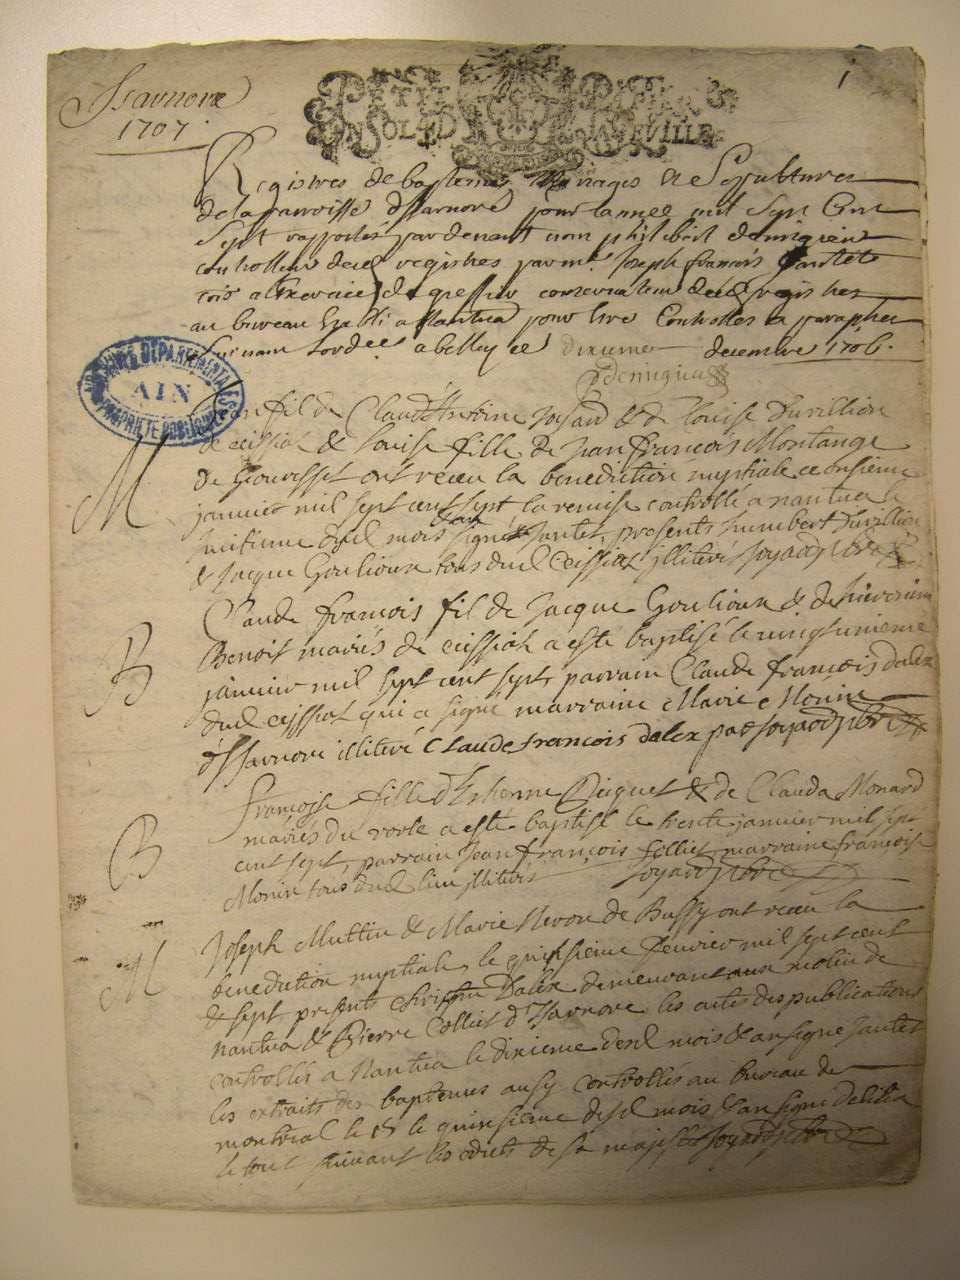 Isarnore
1707.
PETIT PAPIER
UN SOL 4 D LA FEUILLE
1
Registres de baptemes Mariages & Sepultures
de la parroisse d'Isarnore pour lannee mil Sept Cent
Sept rapportés pardevant nous philibert
controlleur desd registres par me. Joseph francois Jantet
conservateur desd registres
au bureau Establi a Nantua pour Etre Controlles & paraphes
Suivant Lordce a belley ce dixieme decembre 1706.
ARCHIVES DEPARTEMENTALES
AIN
PROPRIETE PUBLIQUE
Jean fil de Claude Antoine Joyard & de Louise Duvillion
de ceissiat & Louise fille de Jean francois Montange
M
de Gouisset ont receu la benediction nuptiale ce onsieme
janvier mil sept cent sept la remise controllé a nantua le
huitieme dud mois signé Jantet, presents humbert Duvillion
& Jacque Goulioux tous dud Ceissiat illiterés Joyard
Claude francois fil de Jacque Goulioux & de
B
Benoit mariés de ceissiat a esté baptisé le vingtunieme
janvier mil sept cent sept, parrain Claude francois dalex
dud ceissiat qui a signé marraine Marie Monin
d'Isarnore illiteré Claude francois dalex
francoise fille d'Estienne Picquet & de Clauda Monard
mariés du vorle a esté baptisé le trente janvier mil sept
B
cent sept, parrain Jean francois Colliet marraine francoise
Monin tous dud lieu illiterés Joyard
Joseph Muttin & Marie Nevon de Bussy ont receu la
benediction nuptiale le quinsieme fevrier mil sept cent
M
& sept present Dalex demeurant aux molin de
nantua & Pierre Colliet d'Isarnore les actes des publications
controllés a Nantua le dixieme desd mois & an signé Jantet
les extraits des baptemes ausy controllés au bureau de
montreal le quinsieme desd mois & an signé
le tout suivant les edits de sa majesté Joyard